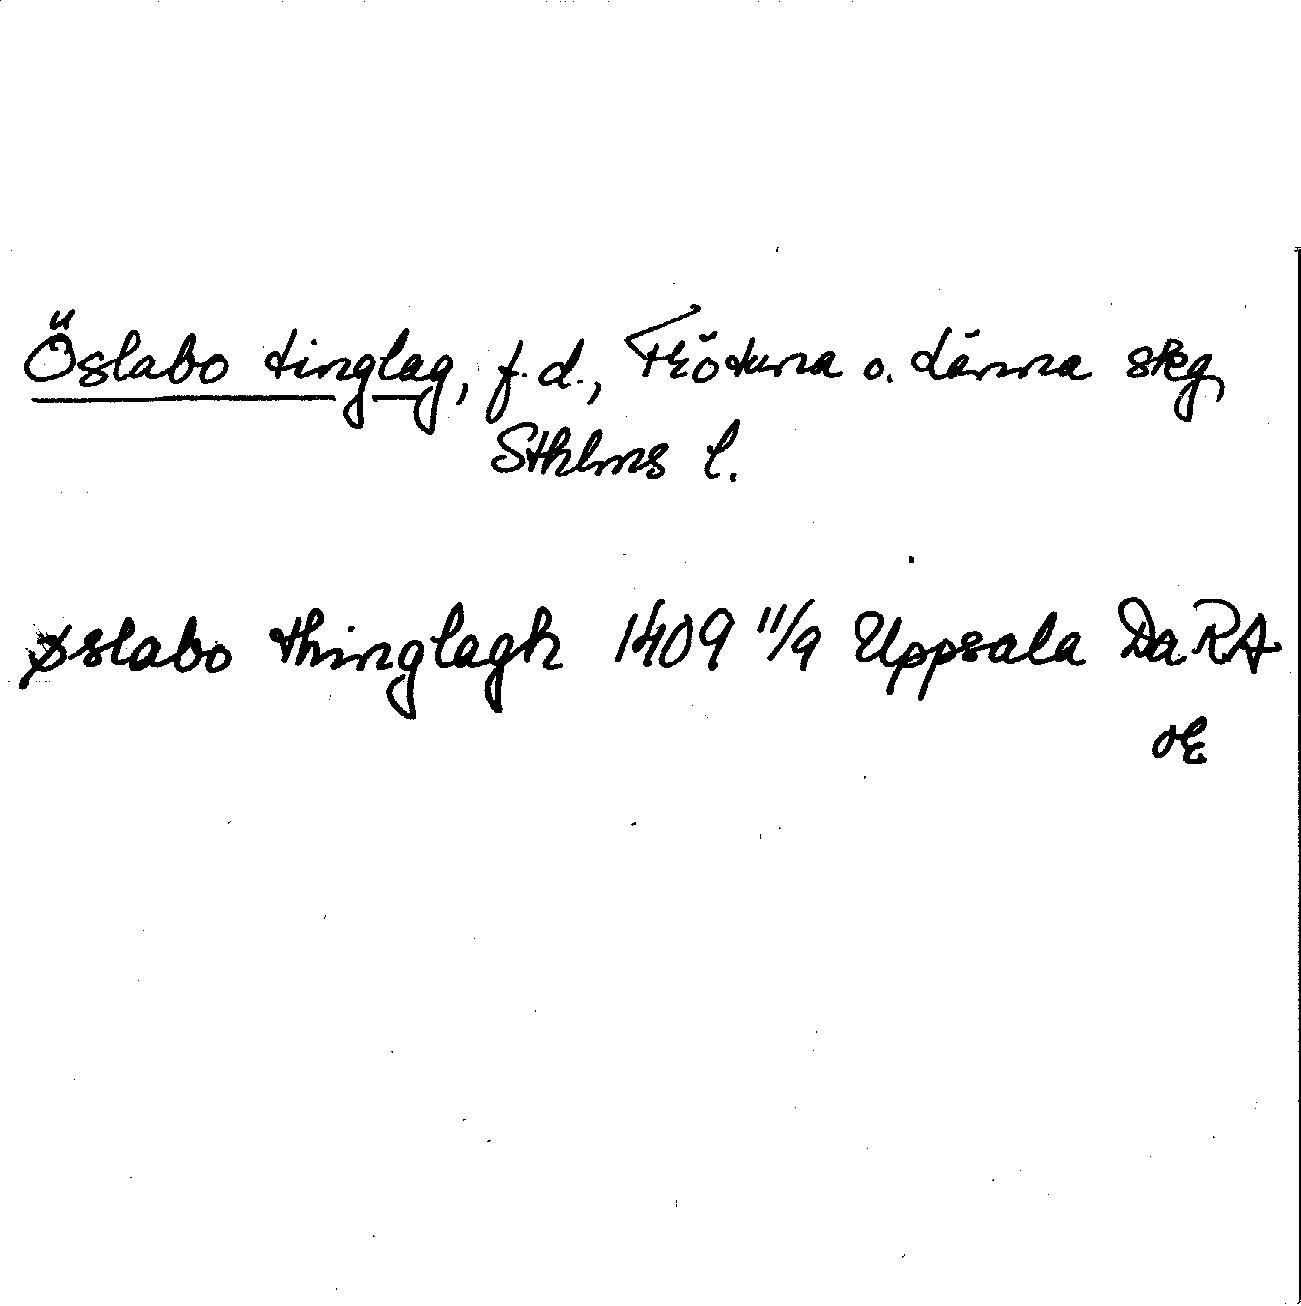 Öslabo tinglag, f.d., Frötuna o. Länna skg,
Sthlms l.
øslabo thinglagh 1409 11/9 Uppsala DaRA
or